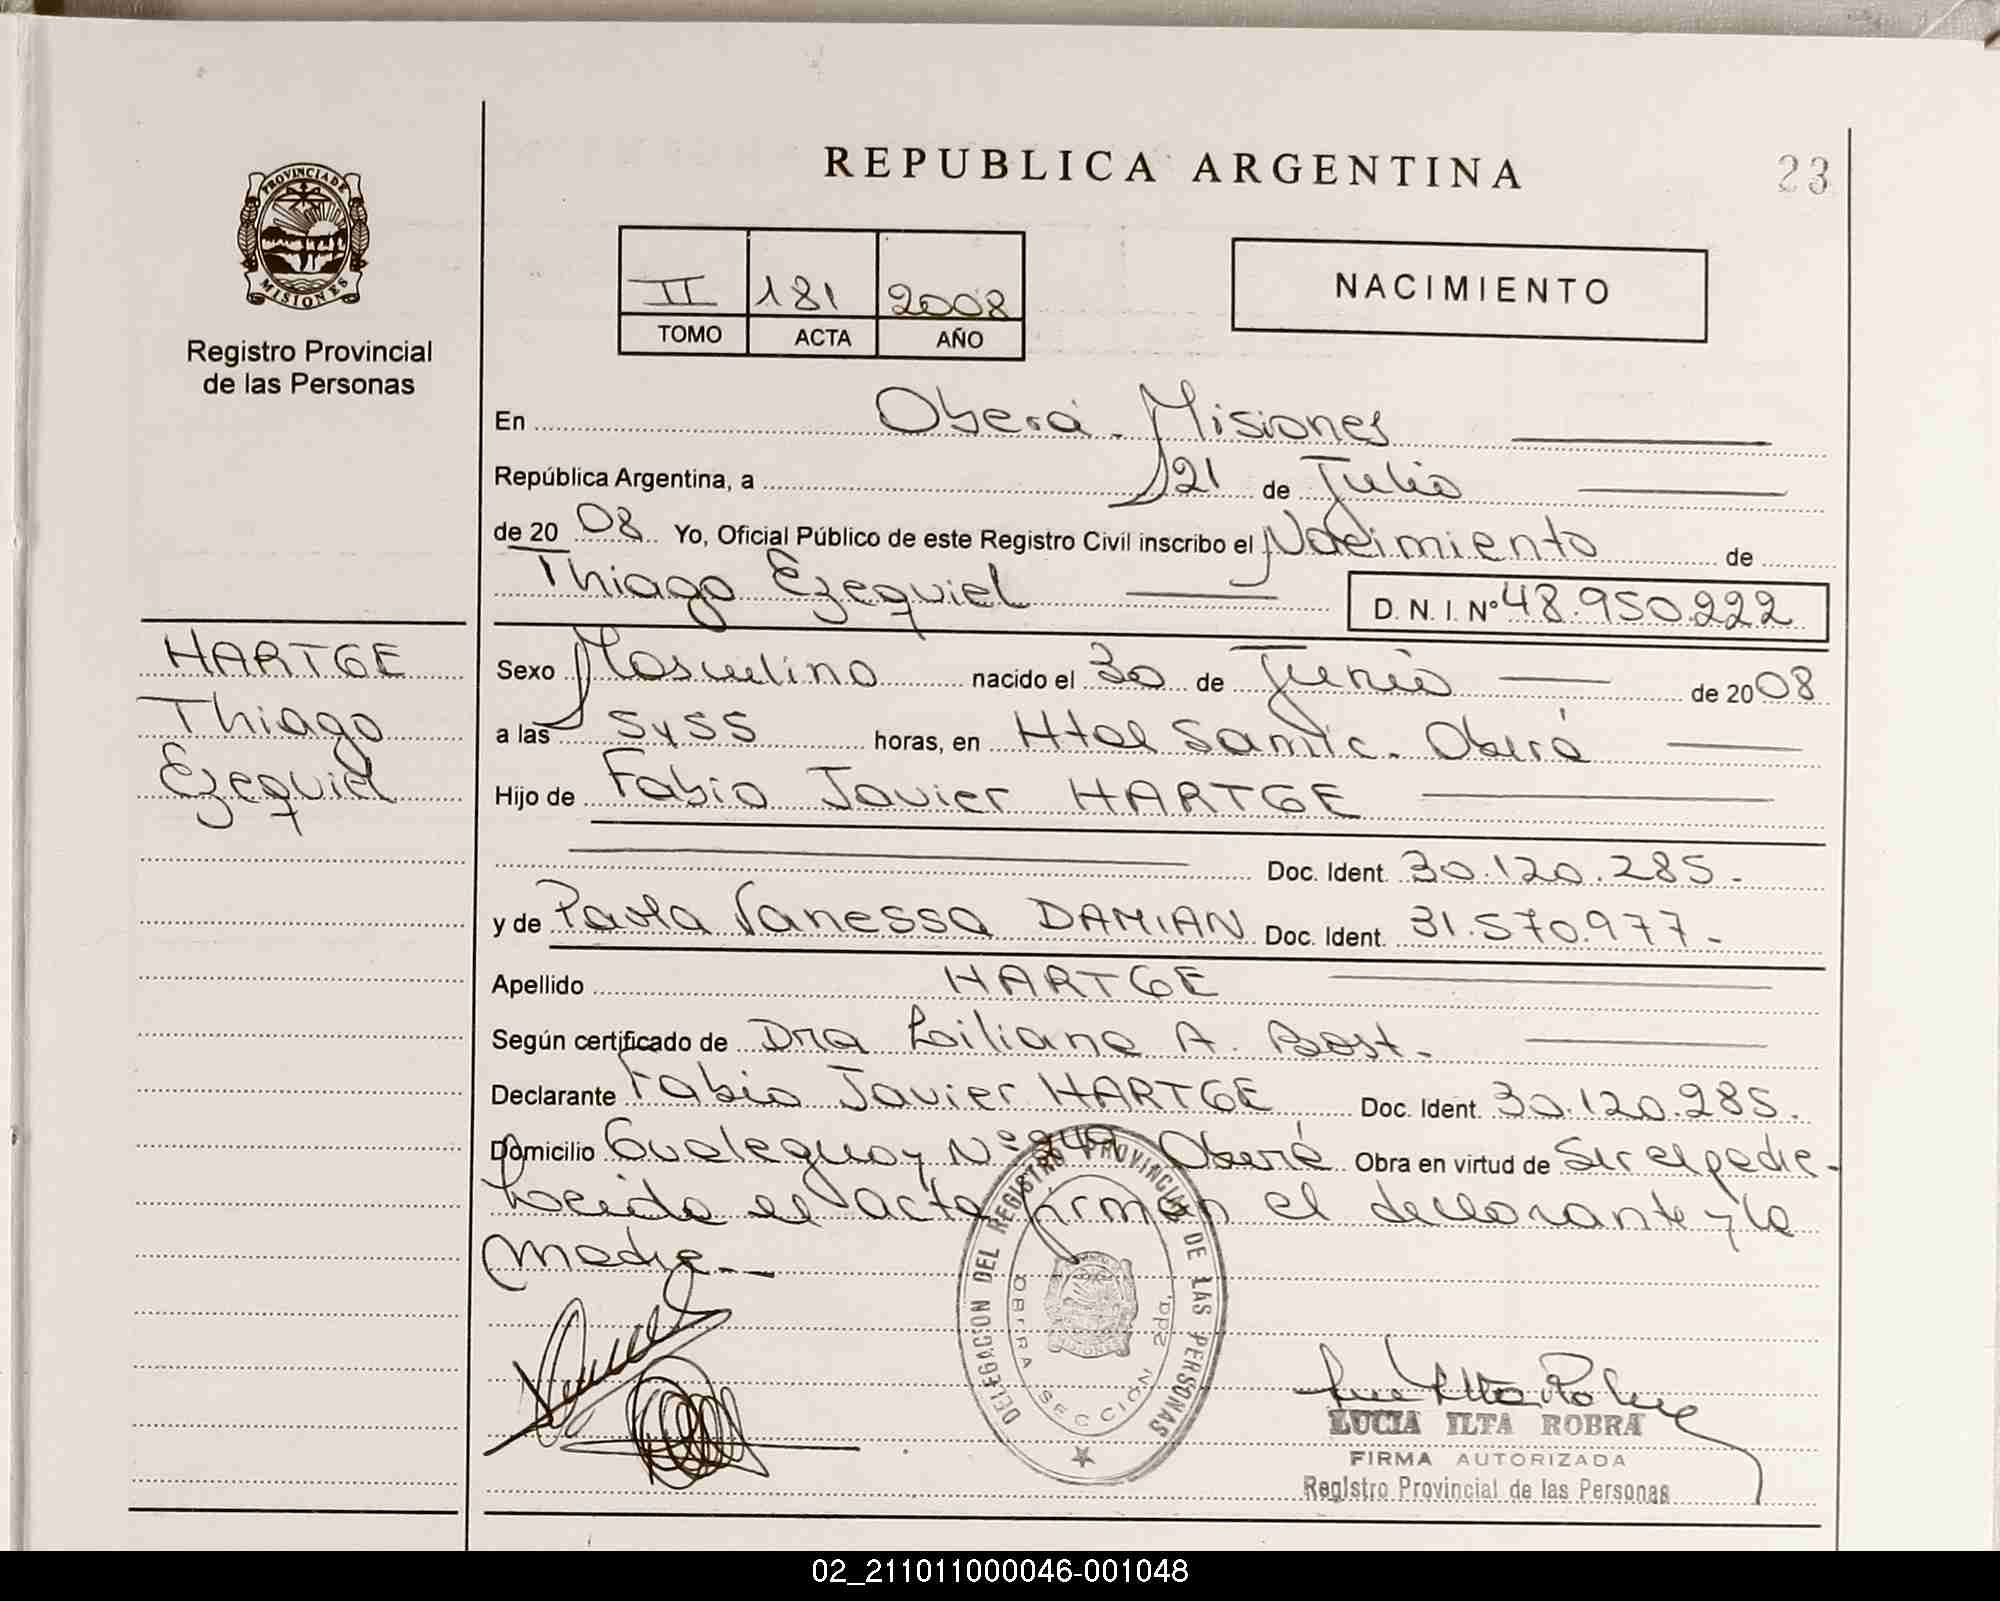 REPUBLICA ARGENTINA
23
PROVINCIA DE
MISIONES
Registro Provincial
de las Personas
II 181 2008
TOMO ACTA AÑO
NACIMIENTO
En Oberá - Misiones
República Argentina, a 21 de Julio
de 20 08 Yo, Oficial Público de este Registro Civil inscribo el Nacimiento de
Thiago Ezequiel D. N. I. Nº 48.950.222
HARTGE
Thiago
Ezequiel
Sexo Masculino nacido el 30 de Junio de 20 08
a las 5y55 horas, en Htal Samic. Oberá
Hijo de Fabio Javier HARTGE
Doc. Ident. 30.120.285.-
y de Paola Vanessa DAMIAN Doc. Ident. 31.570.977.-
Apellido HARTGE
Según certificado de Dra Liliana A. Bost.-
Declarante Fabio Javier HARTGE Doc. Ident. 30.120.285.
Domicilio Gualeguay Nº Oberá Obra en virtud de Ser el padre-
Leída el acta firman el declarante y la
madre.--
DELEGACION DEL REGISTRO PROVINCIAL DE LAS PERSONAS
OBERA SECCIÓN 2da.
MISIONES
LUCIA ILTA ROBRA
FIRMA AUTORIZADA
Registro Provincial de las Personas
02_211011000046-001048